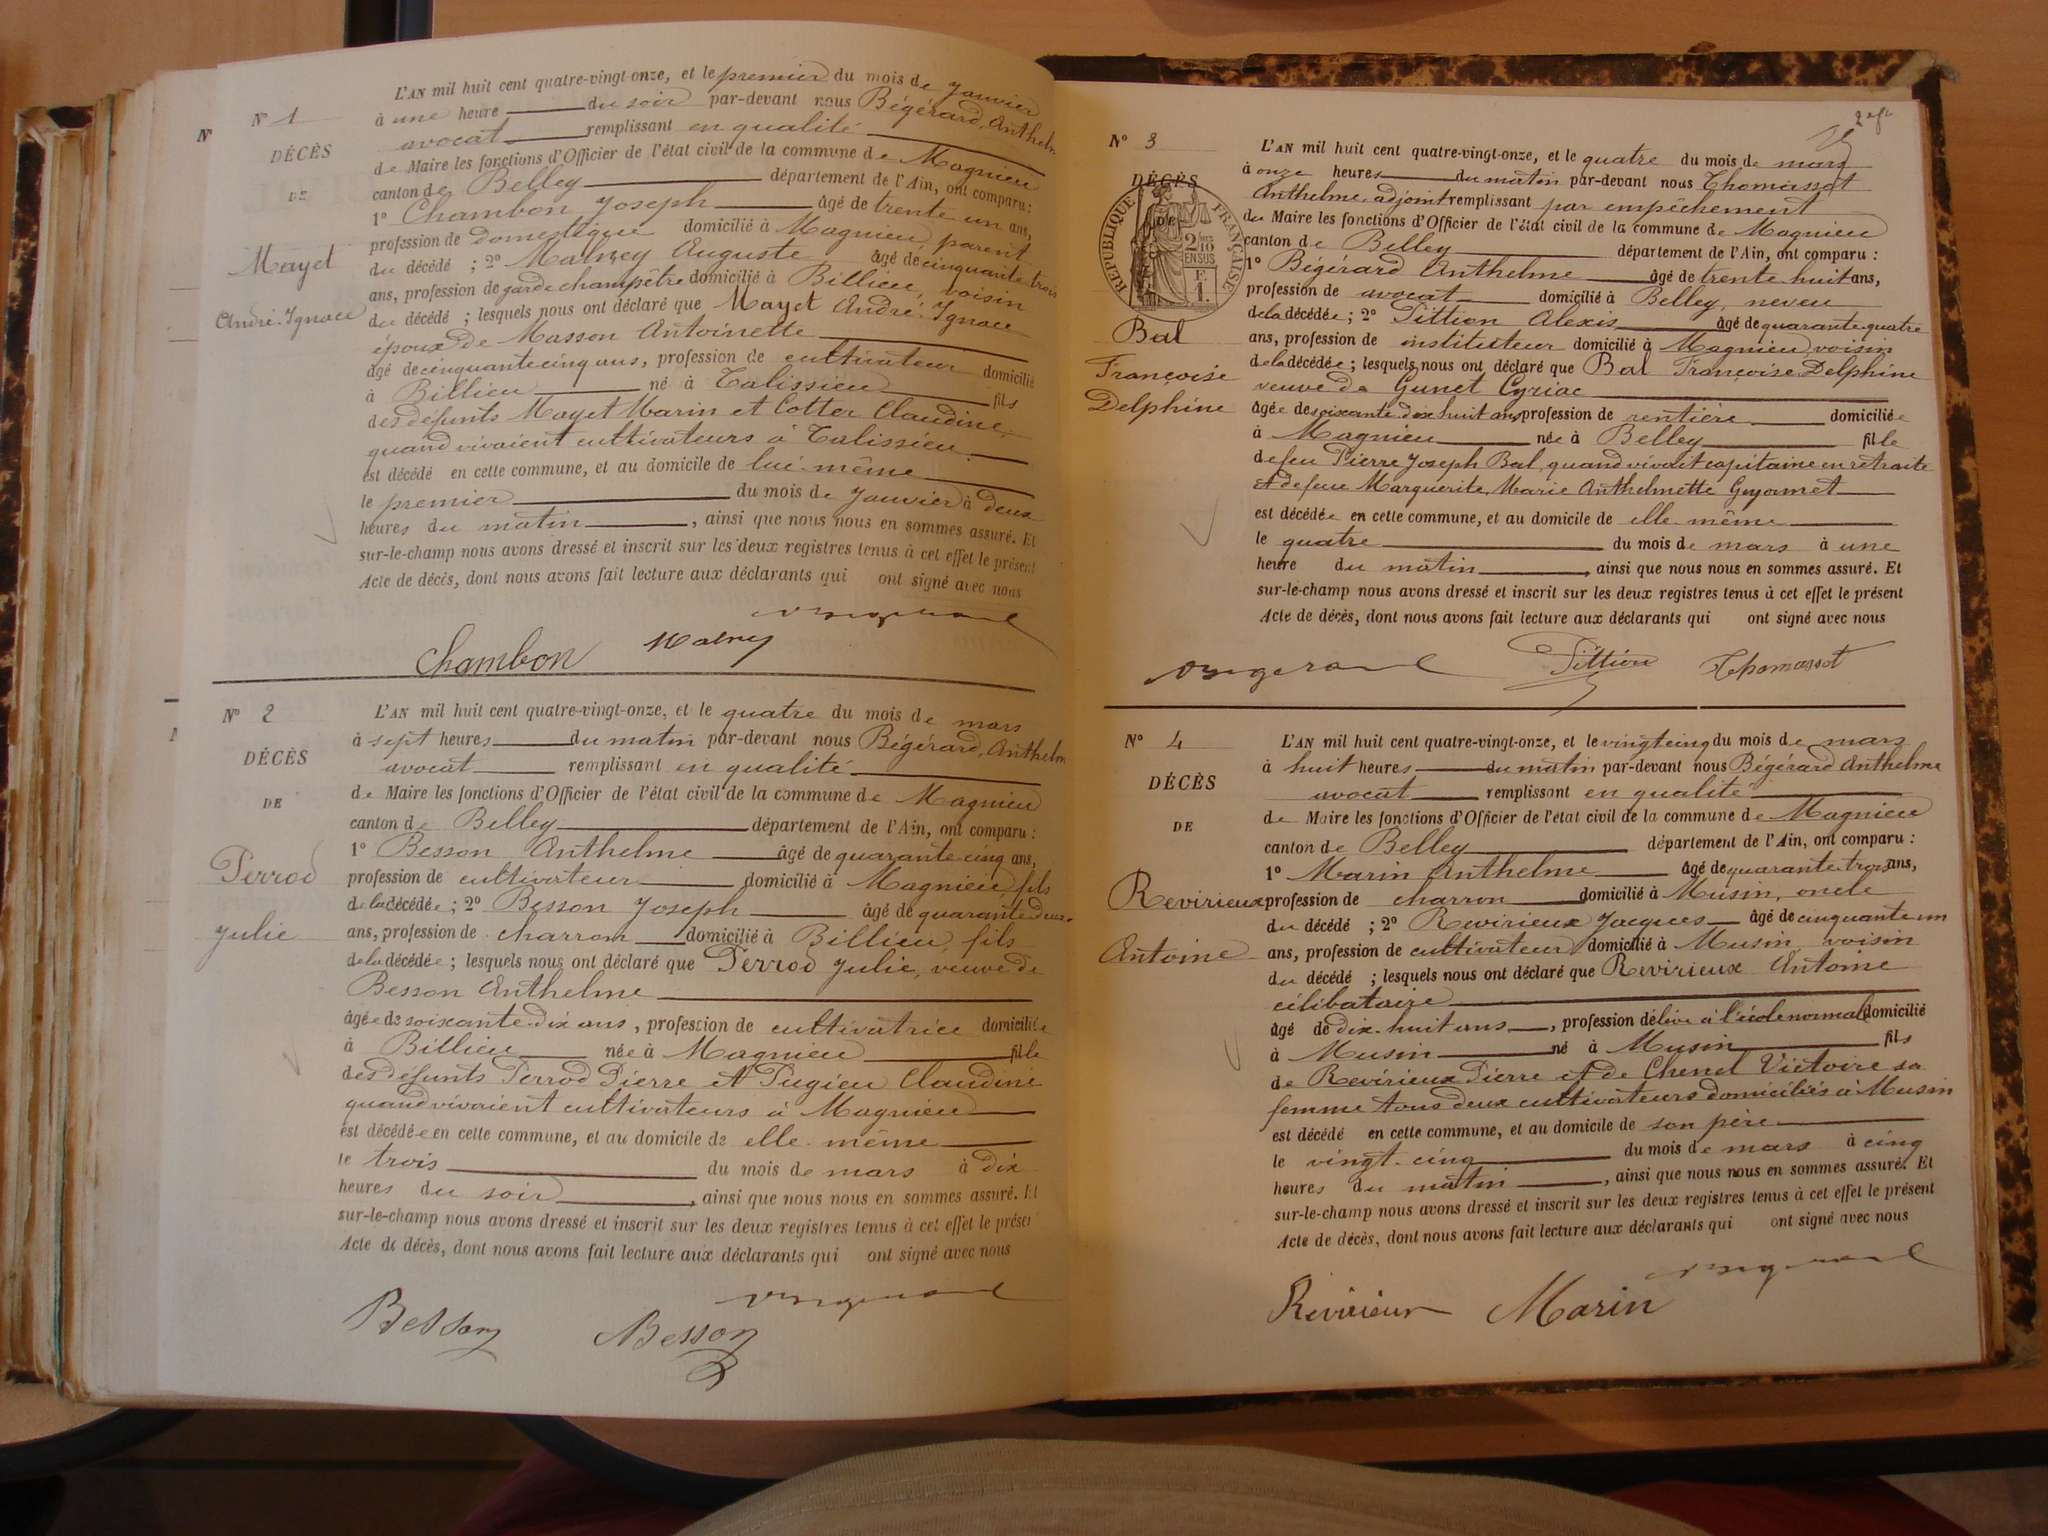 N° 1
DÉCÈS
DE
Mayet
André-Ignace
L'AN mil huit cent quatre-vingt-onze, et le premier du mois de janvier
à une heure du soir par-devant nous Bégérard, Anthelm
avocat remplissant en qualité
de Maire les fonctions d'Officier de l'état civil de la commune de Magnieu
canton de Belley département de l'Ain, ont comparu :
1° Chambon Joseph âgé de trente un ans,
profession de domestique domicilié à Magnieu, parent
du décédé ; 2° Malrey Auguste âgé de cinquante trois
ans, profession de garde champêtre domicilié à Billieu, voisin
du décédé ; lesquels nous ont déclaré que Mayet André-Ignace
époux de Masson Antoinette
âgé de cinquante cinq ans, profession de cultivateur domicilié
à Billieu né à Talissieu fils
des défunts Mayet Marin et Cotter Claudine,
quand vivaient cultivateurs à Talissieu
est décédé en cette commune, et au domicile de lui-même
le premier du mois de janvier à deux
heures du matin, ainsi que nous nous en sommes assuré. Et
sur-le-champ nous avons dressé et inscrit sur les deux registres tenus à cet effet le présent
Acte de décès, dont nous avons fait lecture aux déclarants qui ont signé avec nous
Chambon Malrey
N° 2
DÉCÈS
DE
Perrod
Julie
L'AN mil huit cent quatre-vingt-onze, et le quatre du mois de mars
à sept heures du matin par-devant nous Bégérard, Anthelm
avocat remplissant en qualité
de Maire les fonctions d'Officier de l'état civil de la commune de Magnieu
canton de Belley département de l'Ain, ont comparu :
1° Besson Anthelme âgé de quarante cinq ans,
profession de cultivateur domicilié à Magnieu fils
de la décédée ; 2° Besson Joseph âgé de quarante deux
ans, profession de charron domicilié à Billieu, fils
de la décédée ; lesquels nous ont déclaré que Perrod Julie, veuve de
Besson Anthelme
âgée de soixante-dix ans, profession de cultivatrice domiciliée
à Billieu née à Magnieu fille
des défunts Perrod Pierre et Pugieu Claudine
quand vivaient cultivateurs à Magnieu
est décédée en cette commune, et au domicile de elle-même
le trois du mois de mars à dix
heures du soir, ainsi que nous nous en sommes assuré. Et
sur-le-champ nous avons dressé et inscrit sur les deux registres tenus à cet effet le prései
Acte de décès, dont nous avons fait lecture aux déclarants qui ont signé avec nous
Besson Besson
N° 3
DÉCÈS
RÉPUBLIQUE FRANÇAISE
2/10 EN SUS
Bal
Françoise
Delphine
L'AN mil huit cent quatre-vingt-onze, et le quatre du mois de mars
à onze heures du matin par-devant nous Thomasset
Anthelme, adjoint remplissant par empêchement
de Maire les fonctions d'Officier de l'état civil de la commune de Magnieu
canton de Belley département de l'Ain, ont comparu :
1° Bégérard Anthelme âgé de trente huit ans,
profession de avocat domicilié à Belley, neveu
de la décédée ; 2° Pittion Alexis âgé de quarante quatre
ans, profession de instituteur domicilié à Magnieu, voisin
de la décédée ; lesquels nous ont déclaré que Bal Françoise Delphine
veuve de Gunet Cyriac
âgée de soixante dix huit ans, profession de rentière domiciliée
à Magnieu née à Belley fille
de feu Pierre Joseph Bal, quand vivait capitaine en retraite
et de feue Marguerite, Marie Anthelmette Guyonnet
est décédée en cette commune, et au domicile de elle-même
le quatre du mois de mars à une
heure du matin, ainsi que nous nous en sommes assuré. Et
sur-le-champ nous avons dressé et inscrit sur les deux registres tenus à cet effet le présent
Acte de décès, dont nous avons fait lecture aux déclarants qui ont signé avec nous
Pittion Thomasset
N° 4
DÉCÈS
DE
Revirieux
Antoine
L'AN mil huit cent quatre-vingt-onze, et le vingt cinq du mois de mars
à huit heures du matin par-devant nous Bégérard Anthelme
avocat remplissant en qualité
de Maire les fonctions d'Officier de l'état civil de la commune de Magnieu
canton de Belley département de l'Ain, ont comparu :
1° Marin Anthelme âgé de quarante trois ans,
profession de charron domicilié à Musin, oncle
du décédé ; 2° Revirieux Jacques âgé de cinquante un
ans, profession de cultivateur domicilié à Musin, voisin
du décédé ; lesquels nous ont déclaré que Revirieux Antoine
célibataire
âgé de dix-huit ans, profession d'élève à l'école normale domicilié
à Musin né à Musin fils
de Revirieux Pierre et de Chenel Victoire sa
femme tous deux cultivateurs domiciliés à Musin
est décédé en cette commune, et au domicile de son père
le vingt-cinq du mois de mars à cinq
heures du matin, ainsi que nous nous en sommes assuré. Et
sur-le-champ nous avons dressé et inscrit sur les deux registres tenus à cet effet le présent
Acte de décès, dont nous avons fait lecture aux déclarants qui ont signé avec nous
Revirieux Marin